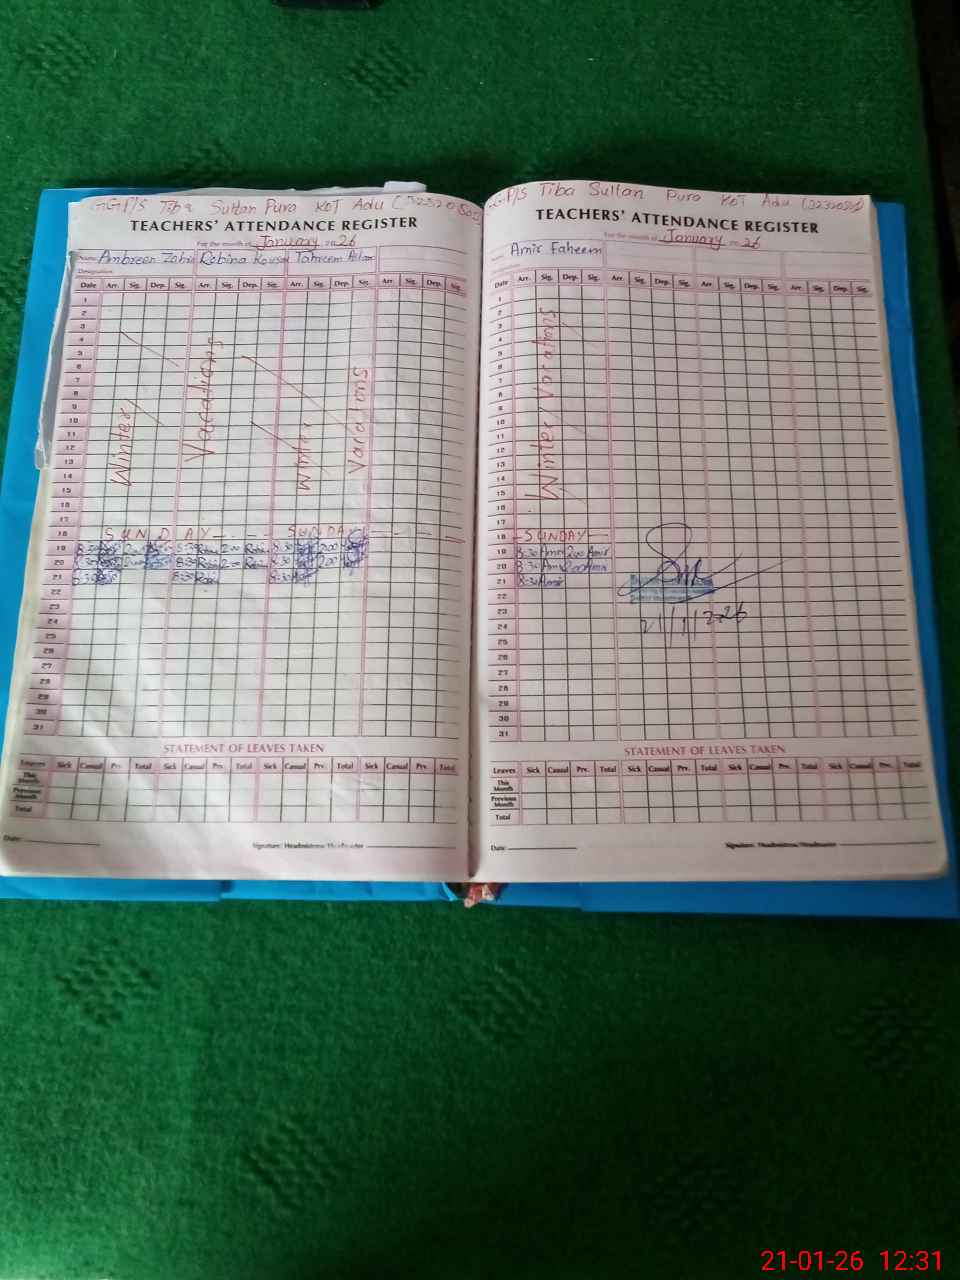 GGP/S Tiba Sultan Pura KOT Adu
TEACHERS' ATTENDANCE REGISTER
For the month of January 2026
Name Ambreen Robina Kousar Tahreem
Designation
Date Arr. Sig. Dep. Sig. Arr. Sig. Dep. Sig. Arr. Sig. Dep. Sig. Arr. Sig. Dep. Sig.
1
2
3
4
5
6
7
8
9
10
11
12
13
14
15
16
17
Winter Vacations Winter Vacations
18 SUNDAY SUNDAY
19 8:30 2:00 8:30 2:00 8:30 2:00
20 8:30 2:00 8:30 2:00 8:30 2:00
21 8:30 8:30 8:30
22
23
24
25
26
27
28
29
30
31
STATEMENT OF LEAVES TAKEN
Leaves Sick Casual Prv. Total Sick Casual Prv. Total Sick Casual Prv. Total Sick Casual Prv. Total
This Month
Previous Month
Total
Date:
Signature: Headmistress/Headmaster
GGP/S Tiba Sultan Pura KOT Adu
TEACHERS' ATTENDANCE REGISTER
For the month of January 2026
Name Amir Faheem
Date Arr. Sig. Dep. Sig. Arr. Sig. Dep. Sig. Arr. Sig. Dep. Sig. Arr. Sig. Dep. Sig.
1
2
3
4
5
6
7
8
9
10
11
12
13
14
15
16
17
Winter Vacations
18 SUNDAY
19 8:30 Amir 2:00 Amir
20 8:30 Amir 2:00 Amir
21 8:30 Amir
22
23
24
25
26
27
28
29
30
31
21/1/2026
STATEMENT OF LEAVES TAKEN
Leaves Sick Casual Prv. Total Sick Casual Prv. Total Sick Casual Prv. Total Sick Casual Prv. Total
This Month
Previous Month
Total
Date:
Signature: Headmistress/Headmaster
21-01-26 12:31